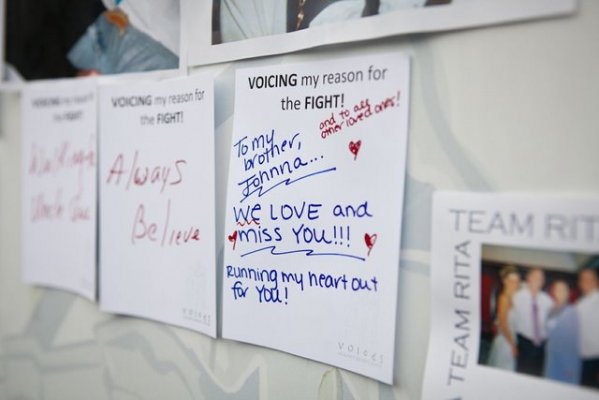 VOICING my reason for
the FIGHT!
VOICING my reason for
the FIGHT!
Always
Believe
VOICING my reason for
the FIGHT!
and to all
other loved ones!
To my
brother,
Johnna...
WE LOVE and
miss YOU!!!
Running my heart out
for YOU!
VOICES
TEAM RITA
TEAM RITA